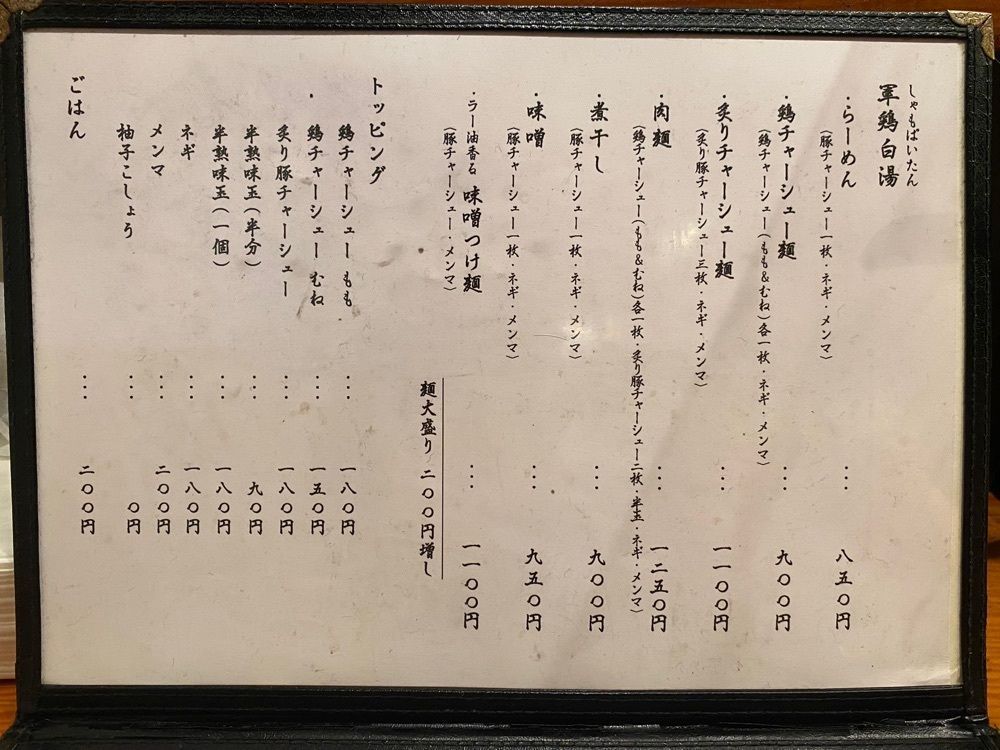 しゃもぱいたん
軍鶏白湯
・らーめん … 八五〇円
(豚チャーシュー一枚・ネギ・メンマ)
・鶏チャーシュー麺 … 九〇〇円
(鶏チャーシュー(もも&むね)各一枚・ネギ・メンマ)
・炙りチャーシュー麺 … 一一〇〇円
(炙り豚チャーシュー三枚・ネギ・メンマ)
・肉麺 一二五〇円
(鶏チャーシュー(もも&むね)各一枚・炙り豚チャーシュー二枚・半玉・ネギ・メンマ)
・煮干し … 九〇〇円
(豚チャーシュー一枚・ネギ・メンマ)
・味噌 … 九五〇円
(豚チャーシュー一枚・ネギ・メンマ)
・ラー油香る 味噌つけ麺 … 一一〇〇円
(豚チャーシュー・メンマ)
麺大盛り 二〇〇円増し
トッピング
鶏チャーシュー もも … 一八〇円
・鶏チャーシュー むね … 一五〇円
炙り豚チャーシュー … 一八〇円
半熟味玉(半分) … 九〇円
半熟味玉(一個) … 一八〇円
ネギ … 一八〇円
メンマ 二〇〇円
柚子こしょう … 〇円
ごはん … 二〇〇円